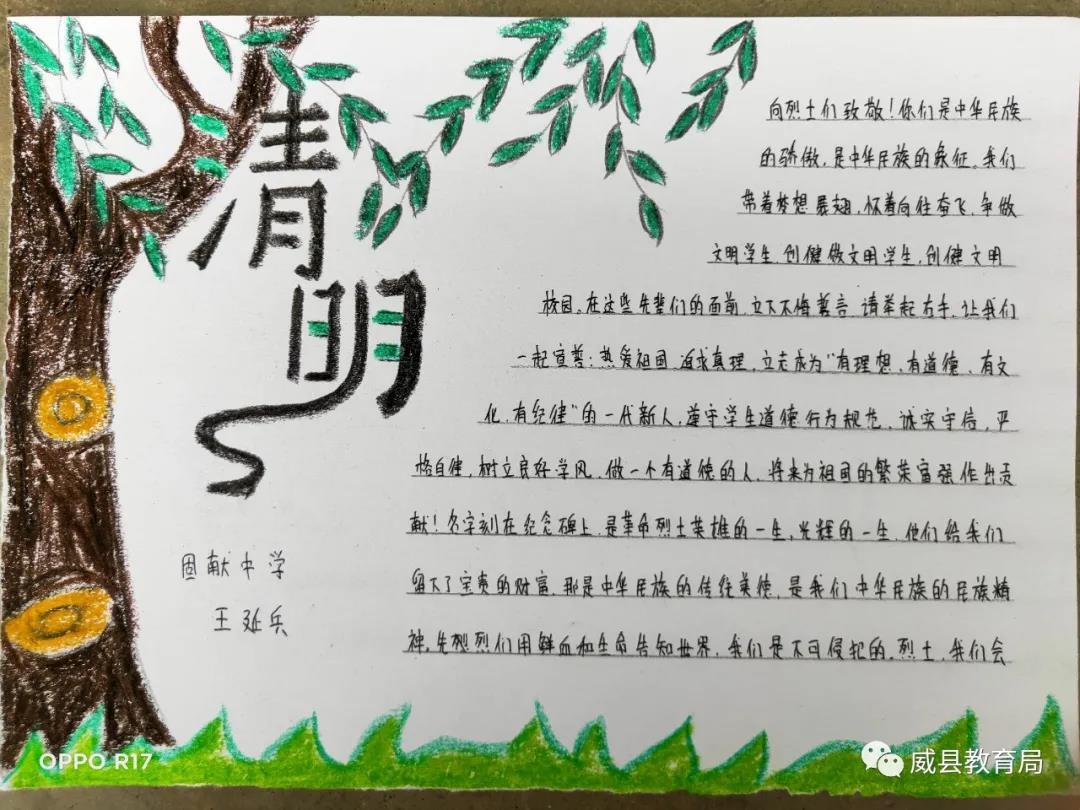 清明
向烈士们致敬！你们是中华民族
的骄傲，是中华民族的象征。我们
带着梦想展翅，怀着向往奋飞，争做
文明学生，创健做文明学生，创健文明
校园。在这些先辈们的面前，立下不悔誓言，请举起右手，让我们
一起宣誓：热爱祖国，追求真理，立志成为“有理想、有道德、有文
化、有纪律”的一代新人，遵守学生道德行为规范，诚实守信，严
格自律，树立良好学风，做一个有道德的人，将来为祖国的繁荣富强作出贡
献！名字刻在纪念碑上，是革命烈士英雄的一生，光辉的一生，他们给我们
留下了宝贵的财富，那是中华民族的传统美德，是我们中华民族的民族精
神。先烈烈们用鲜血和生命告知世界，我们是不可侵犯的。烈士，我们会
固献中学
王延兵
OPPO R17
威县教育局